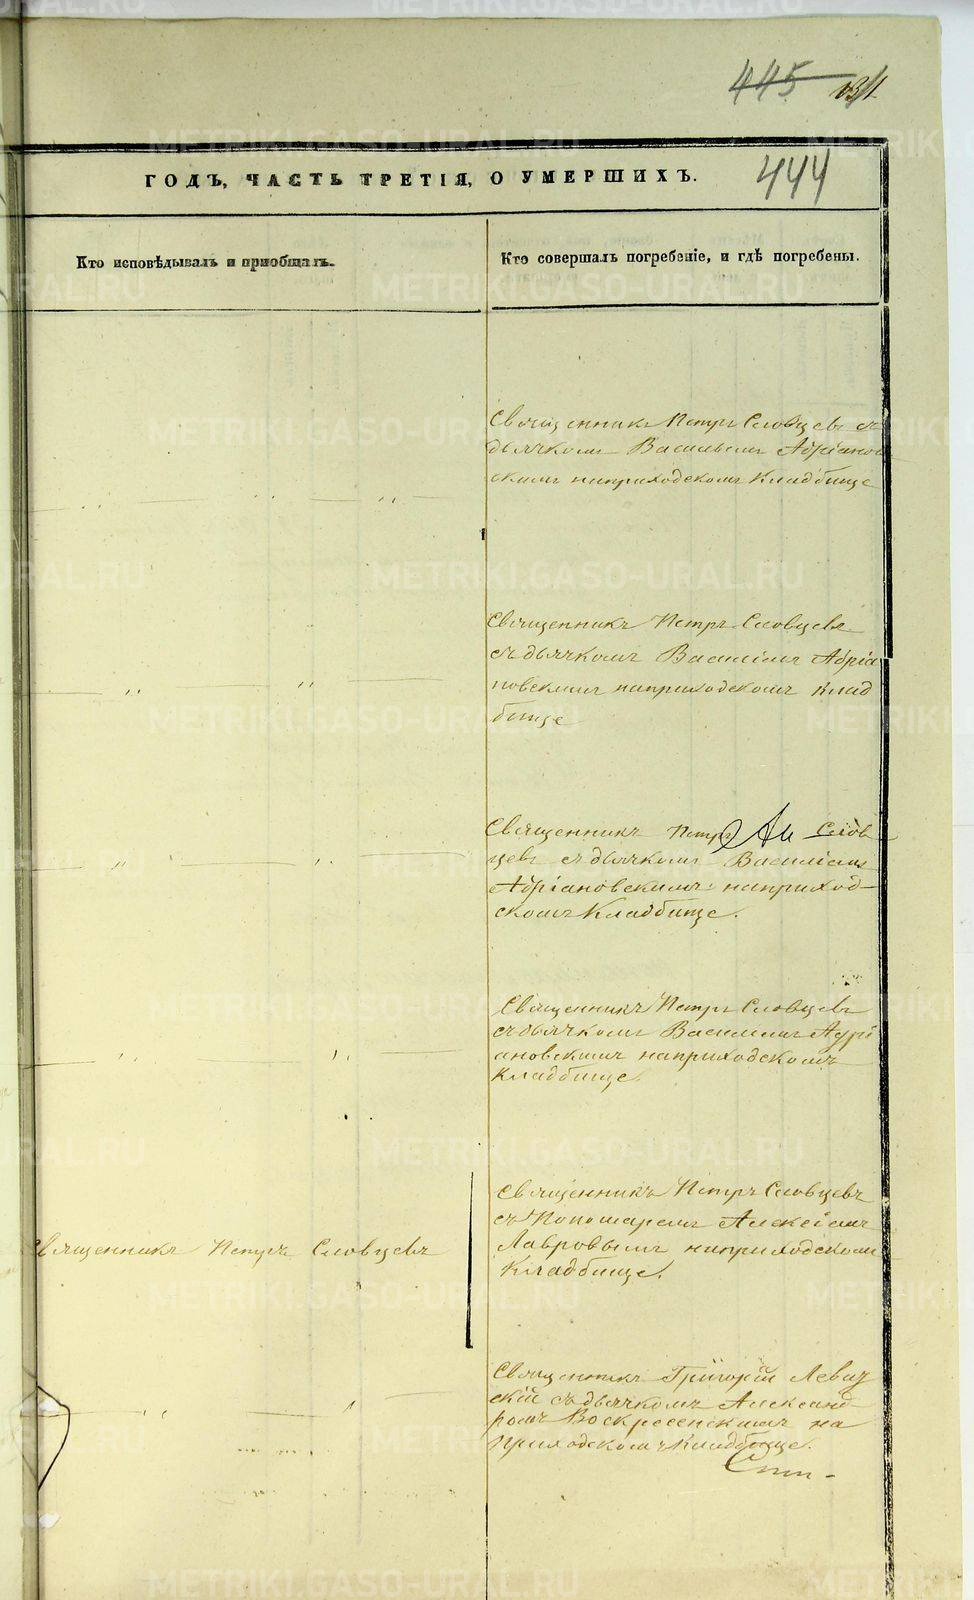 445
ГОДЪ, ЧАСТЬ ТРЕТІЯ, О УМЕРШИХЪ.
444
Кто исповѣдывалъ и приобщалъ.
Кто совершалъ погребеніе, и гдѣ погребены.
Священникъ Петръ Словцевъ съ
дьячкомъ Васильемъ Адріанов
скимъ наприходскомъ кладбище
Священникъ Петръ Словцевъ
съ дьячкомъ Василіемъ Адріа
новскимъ наприходскомъ клад
бище
Священникъ Петръ Слов
цевъ съ дьячкомъ Василіемъ
Адріановскимъ наприход-
скомъ Кладбище.
Священникъ Петръ Словцевъ
съ дьячкомъ Василіемъ Адрі
ановскимъ наприходскомъ
кладбище.
Священникъ Петръ Словцевъ
Священникъ Петръ Словцевъ
съ Пономаремъ Алексіемъ
Лавровымъ наприходскомъ
Кладбище.
Священникъ Григорій Левиц
скій съ дьячкомъ Александ
ромъ Воскресенскимъ на
приходскомъ Кладбище.
METRIKI.GASO-URAL.RU